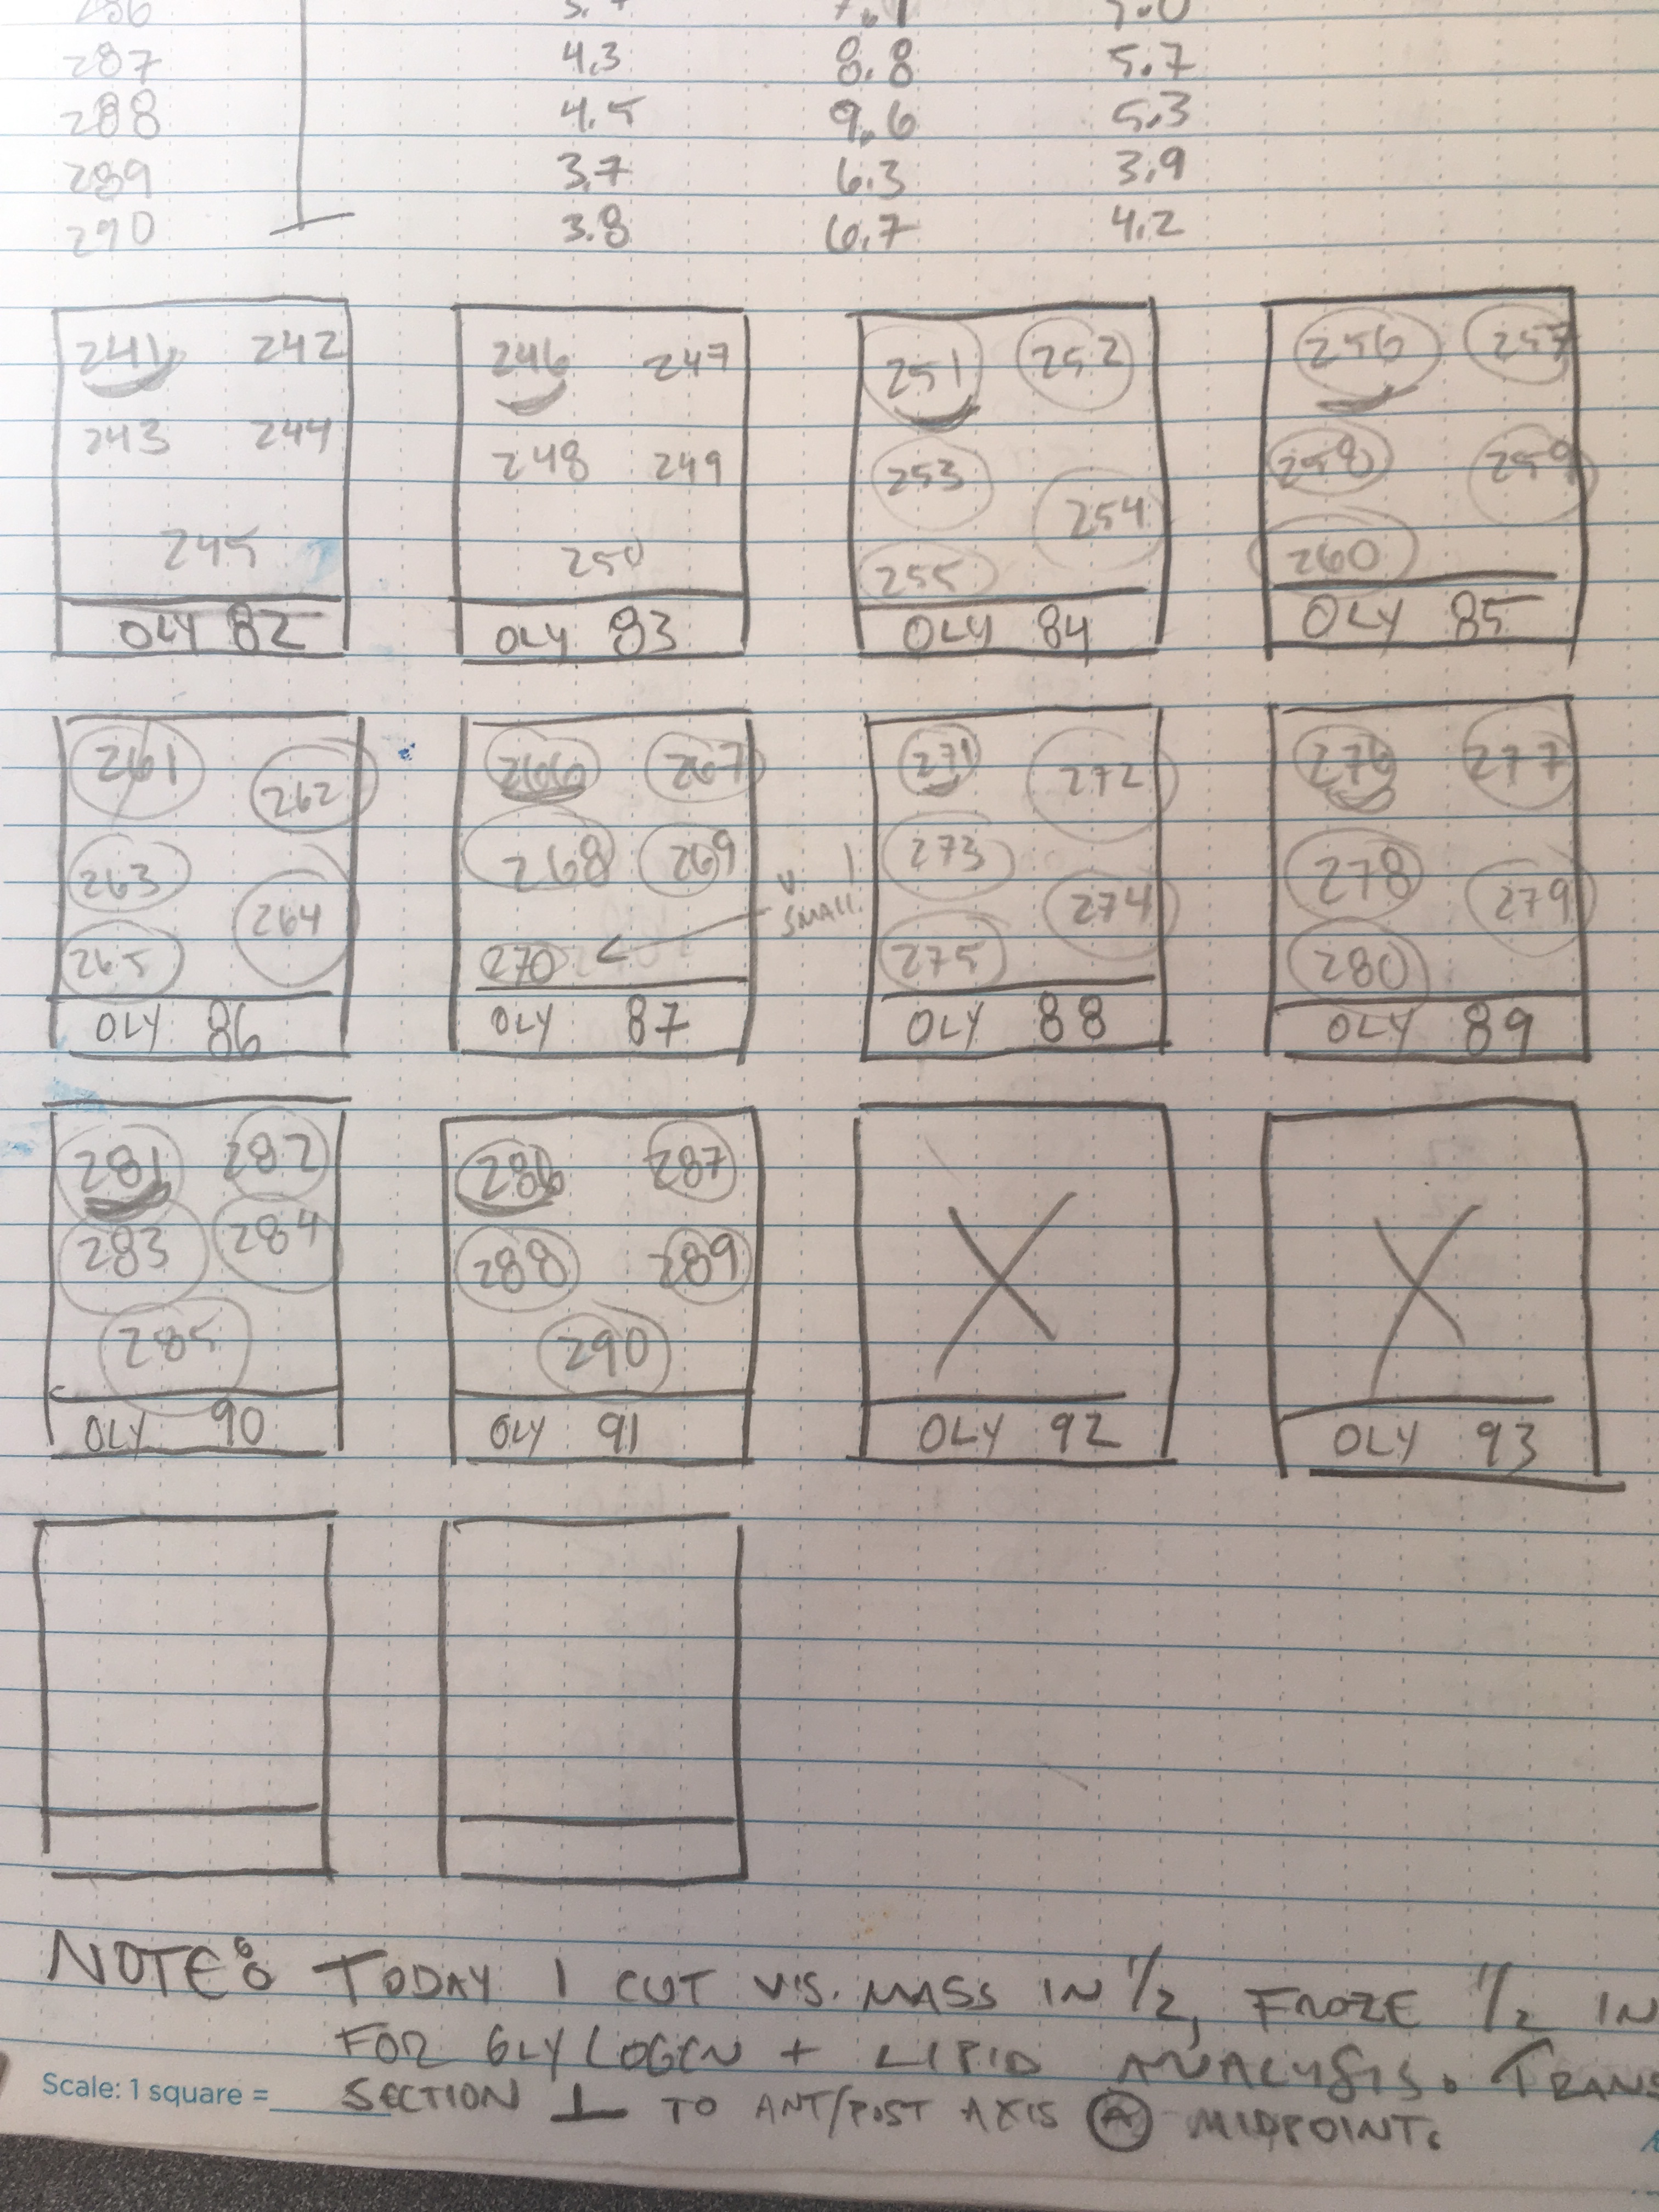 287 4.3 8.8 5.7
288 4.5 9.6 5.3
289 3.7 6.3 3.9
290 3.8 6.7 4.2
241 242
243 244
245
OLY 82
246 247
248 249
250
OLY 83
251 252
253 254
255
OLY 84
256 257
258 259
260
OLY 85
261 262
263 264
265
OLY 86
266 267
268 269
270
OLY 87
SMALL
271 272
273 274
275
OLY 88
276 277
278 279
280
OLY 89
281 282
283 284
285
OLY 90
286 287
288 289
290
OLY 91
X
OLY 92
X
OLY 93
NOTE: TODAY I CUT VIS. MASS IN 1/2, FROZE 1/2 IN
FOR GLYCOGEN + LIPID ANALYSIS. TRANS
Scale: 1 square =
SECTION ⊥ TO ANT/POST AXIS @ MIDPOINT.